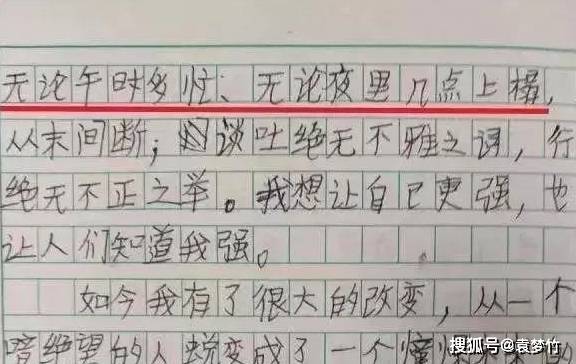 无论午时多忙、无论夜里几点上榻，
从未间断；谈吐绝无不雅之词，行
绝无不正之举。我想让自己更强，也
让人们知道我强。
如今我有了很大的改变，从一个
绝望的人蜕变成了一个
搜狐号@袁梦竹